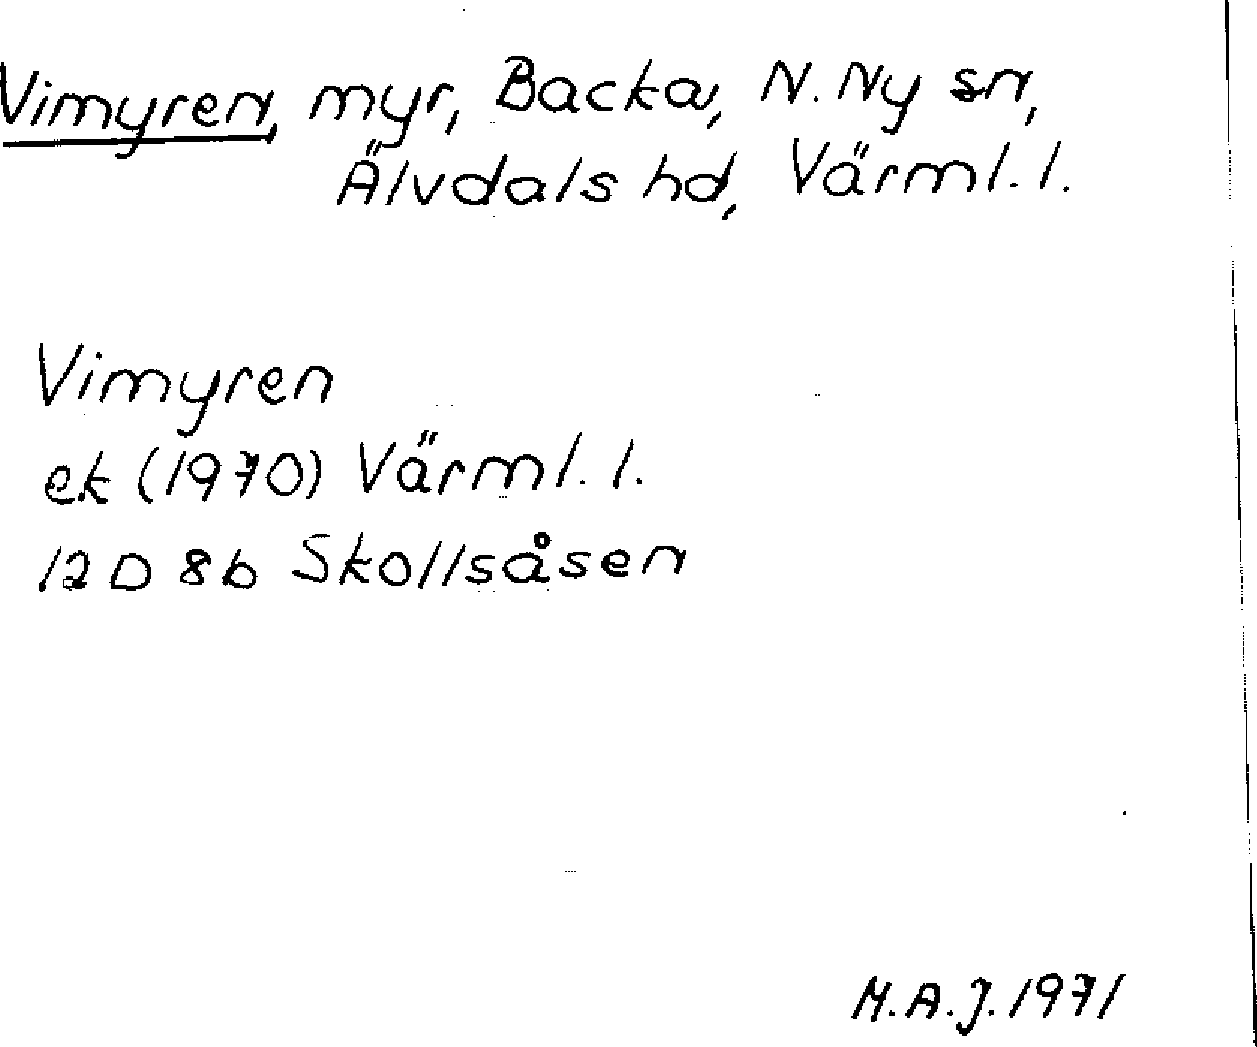 Vimyren, myr, Backa, N. Ny sn,
Älvdals hd, Värml. l.
Vimyren
ek (1970) Värml. l.
12 D 8b Skollsåsen
M.A.J. 1971